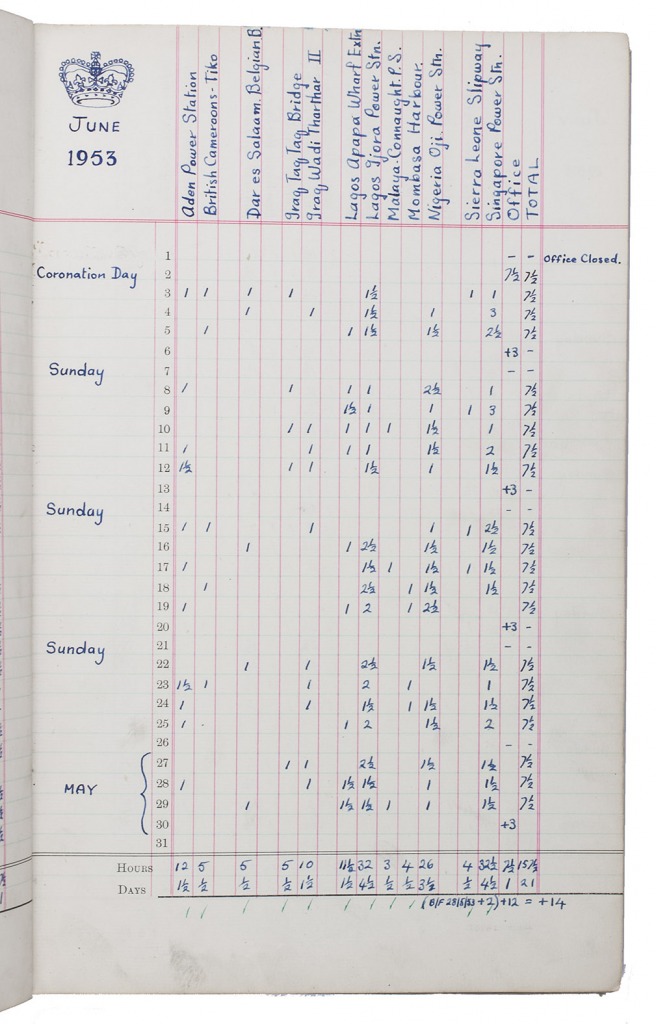 JUNE
1953
Aden Power Station
British Cameroons - Tiko
Dar es Salaam. Belgian B.
Iraq Taq Taq Bridge
Iraq Wadi Tharthar II
Lagos Apapa Wharf Extn
Lagos Ijora Power Stn.
Malaya-Connaught.P.S.
Mombasa Harbour.
Nigeria Oji. Power Stn.
Sierra Leone Slipway
Singapore Power Stn.
Office
TOTAL
1 - - Office Closed.
Coronation Day 2 7½ 7½
3 1 1 1 1 1½ 1 1 7½
4 1 1 1½ 1 3 7½
5 1 1 1½ 1½ 2½ 7½
6 +3 -
Sunday 7 - -
8 1 1 1 1 2½ 1 7½
9 1½ 1 1 1 3 7½
10 1 1 1 1 1 1½ 1 7½
11 1 1 1 1 1½ 2 7½
12 1½ 1 1 1½ 1 1½ 7½
13 +3 -
Sunday 14 - -
15 1 1 1 1 1 2½ 7½
16 1 1 2½ 1½ 1½ 7½
17 1 1½ 1 1½ 1 1½ 7½
18 1 2½ 1 1½ 1½ 7½
19 1 1 2 1 2½ 7½
20 +3 -
Sunday 21 - -
22 1 1 2½ 1½ 1½ 7½
23 1½ 1 1 2 1 1 7½
24 1 1 1½ 1 1½ 1½ 7½
25 1 - 1 2 1½ 2 7½
26 - -
27 1 1 2½ 1½ 1½ 7½
MAY 28 1 1 1½ 1½ 1 1½ 7½
29 1 1½ 1½ 1 1 1½ 7½
30 +3
31
HOURS 12 5 5 5 10 11½ 32 3 4 26 4 32½ 7½ 157½
DAYS 1½ ½ ½ ½ 1½ 1½ 4½ ½ ½ 3½ ½ 4½ 1 21
(B/F 28/5/53 +2) +12 = +14